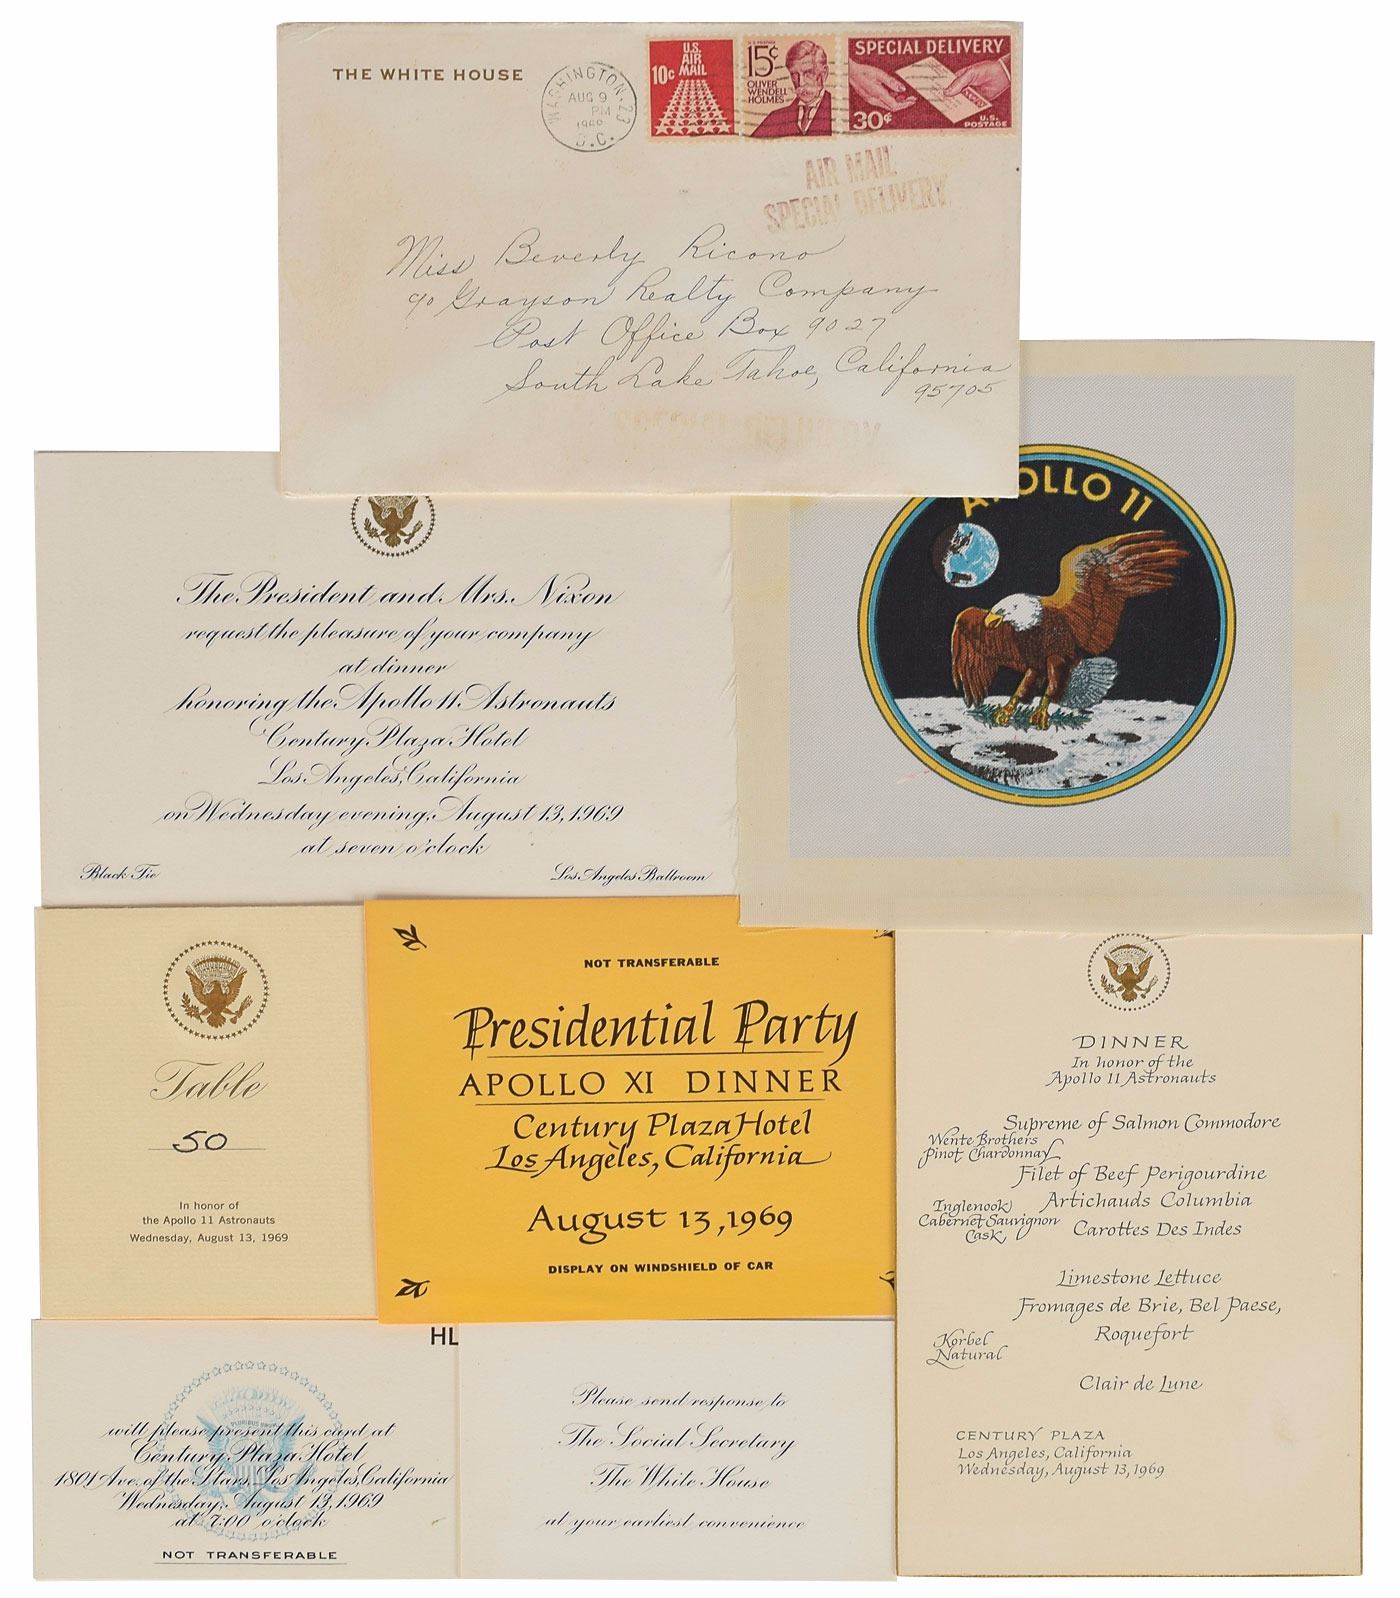 THE WHITE HOUSE
WASHINGTON, 23
AUG 9
PM
D.C.
U.S.
AIR
10c MAIL
15¢
OLIVER
WENDELL
HOLMES
SPECIAL DELIVERY
30¢
U.S.
POSTAGE
AIR MAIL
SPECIAL DELIVERY
Miss Beverly Ricono
c/o Grayson Realty Company
Post Office Box 9027
South Lake Tahoe, California
95705
The President and Mrs. Nixon
request the pleasure of your company
at dinner
honoring the Apollo 11 Astronauts
Century Plaza Hotel
Los Angeles, California
on Wednesday evening, August 13, 1969
at seven o'clock
Black Tie
Los Angeles Ballroom
APOLLO 11
Table
50
In honor of
the Apollo 11 Astronauts
Wednesday, August 13, 1969
NOT TRANSFERABLE
Presidential Party
APOLLO XI DINNER
Century Plaza Hotel
Los Angeles, California
August 13, 1969
DISPLAY ON WINDSHIELD OF CAR
DINNER
In honor of the
Apollo 11 Astronauts
Supreme of Salmon Commodore
Wente Brothers
Pinot Chardonnay
Filet of Beef Perigourdine
Artichauds Columbia
Inglenook
Cabernet Sauvignon
Cask
Carottes Des Indes
Limestone Lettuce
Fromages de Brie, Bel Paese,
Roquefort
Korbel
Natural
Clair de Lune
CENTURY PLAZA
Los Angeles, California
Wednesday, August 13, 1969
HL
will please present this card at
Century Plaza Hotel
1801 Ave. of the Stars, Los Angeles, California
Wednesday, August 13, 1969
at 7:00 o'clock
NOT TRANSFERABLE
Please send response to
The Social Secretary
The White House
at your earliest convenience